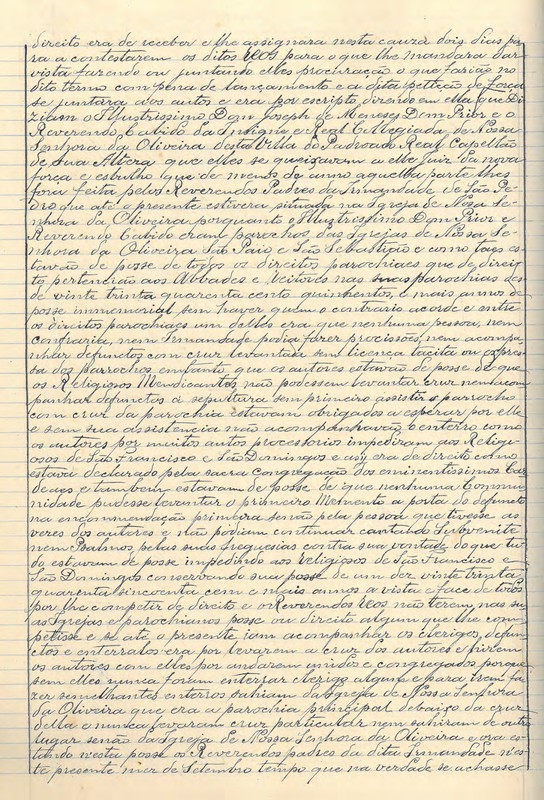 direito era de receber e lhe assignara nesta cauza dois dias pa-
ra a contestarem os ditos Reos para o que lhe mandara dar
vista fazendo ou juntando elles procuração o que farião no
dito termo com pena de lançamento e a dita petição de força
se juntára aos autos e era por escripto, dizendo em ella que Di-
ziam o Illustrissimo Dom Joseph de Menezes Dom Prior e o
Reverendo Cabido da Insigne e Real Collegiada de Nossa
Senhora da Oliveira desta Villa do Padroado Real Capellão
de Sua Alteza que elles se queixavam a elle Juiz da nova
força e esbulho que de menos de anno aquella parte lhes
fora feita pelos Reverendos Padres da Irmandade de São Pe-
dro que até o presente estivera situada na Igreja de Nossa Se-
nhora da Oliveira porquanto o Illustrissimo Dom Prior e
Reverendo Cabido eram parochos das Igrejas de Nossa Se-
nhora da Oliveira São Paio e São Sebastião e como taes es-
tavão de posse de todos os direitos parochiaes que de direi-
to pertencião aos Abbades e Reitores nas suas parochias des-
de vinte trinta quarenta cento quinhentos e mais annos de
posse immemorial sem haver quem o contrario acorde e entre
os direitos parochiaes um delles era que nenhuma pessoa, nem
confraria, nem Irmandade podia fazer procissões, nem acompa-
nhar defunctos com cruz levantada sem licença tacita ou expres-
sa dos parrochos emtanto que os autores estavão de posse de que
os Religiosos Mendicantes não podessem levantar cruz nem acom-
panhar defunctos á sepultura sem primeiro assistir o parrocho
com cruz da parochia estavam obrigados a esperar por elle
e sem sua assistencia não acompanhavão o enterro como
os autores por muitos autos processorios impediram aos Religi-
osos de São Francisco e São Domingos e assy era de direito como
estava declarado pela sacra Congregação dos eminentissimos Car-
deaes e tambem estavam de posse de que nenhuma Commu-
nidade pudesse levantar o primeiro Memento a porta do defuncto
na encommendação primeira senão pela pessoa que tivesse as
vezes dos autores e não podiam continuar cantando Subvenite
nem Psalmos pelas suas freguesias contra sua vontade do que tu-
do estavam de posse impedindo aos religiosos de São Francisco e
São Domingos conservando sua posse de um dez vinte trinta
quarenta sincoenta cem e mais annos a vista e face de todos
por lhe competir de direito e os Reverendos Reos não terem nas su-
as Igrejas e parochianos posse ou direito algum que lhe com-
petisse e se até o presente iam acompanhar os clerigos, defun-
ctos e enterralos era por levarem a cruz dos autores e hirem
os autores com elles por andarem unidos e congregados porque
sem elles nunca foram enterrar clerigo algum e para irem fa-
zer semelhantes enterros sahiam da Igreja de Nossa Senhora
da Oliveira que era a parochia principal debaixo da cruz
della e nunca levaram cruz particular nem sahiram de outro
lugar senão da Igreja de Nossa Senhora da Oliveira e ora es-
tando nesta posse os Reverendos padres da dita Irmandade nes-
te presente mez de Setembro tempo que na verdade se achasse